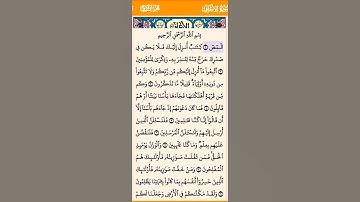 بِسْمِ ٱللَّهِ ٱلرَّحْمَٰنِ ٱلرَّحِيمِ
الٓمٓصٓ ١ كِتَٰبٌ أُنزِلَ إِلَيْكَ فَلَا يَكُن فِى
صَدْرِكَ حَرَجٌ مِّنْهُ لِتُنذِرَ بِهِۦ وَذِكْرَىٰ لِلْمُؤْمِنِينَ
٢ ٱتَّبِعُوا۟ مَآ أُنزِلَ إِلَيْكُم مِّن رَّبِّكُمْ وَلَا تَتَّبِعُوا۟
مِن دُونِهِۦٓ أَوْلِيَآءَ قَلِيلًا مَّا تَذَكَّرُونَ ٣ وَكَم
مِّن قَرْيَةٍ أَهْلَكْنَٰهَا فَجَآءَهَا بَأْسُنَا بَيَٰتًا أَوْ هُمْ
قَآئِلُونَ ٤ فَمَا كَانَ دَعْوَىٰهُمْ إِذْ جَآءَهُم بَأْسُنَآ إِلَّآ
أَن قَالُوٓا۟ إِنَّا كُنَّا ظَٰلِمِينَ ٥ فَلَنَسْـَٔلَنَّ ٱلَّذِينَ
أُرْسِلَ إِلَيْهِمْ وَلَنَسْـَٔلَنَّ ٱلْمُرْسَلِينَ ٦ فَلَنَقُصَّنَّ
عَلَيْهِم بِعِلْمٍ وَمَا كُنَّا غَآئِبِينَ ٧ وَٱلْوَزْنُ يَوْمَئِذٍ
ٱلْحَقُّ فَمَن ثَقُلَتْ مَوَٰزِينُهُۥ فَأُو۟لَٰٓئِكَ هُمُ
ٱلْمُفْلِحُونَ ٨ وَمَنْ خَفَّتْ مَوَٰزِينُهُۥ فَأُو۟لَٰٓئِكَ
ٱلَّذِينَ خَسِرُوٓا۟ أَنفُسَهُم بِمَا كَانُوا۟ بِـَٔايَٰتِنَا يَظْلِمُونَ
٩ وَلَقَدْ مَكَّنَّٰكُمْ فِى ٱلْأَرْضِ وَجَعَلْنَا لَكُمْ